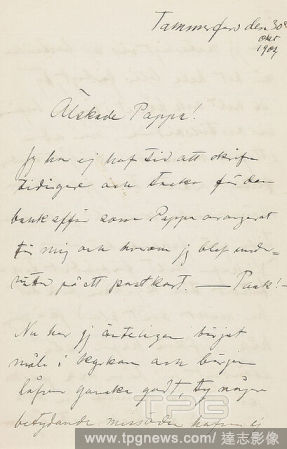 Tammerfors den 30e
okt
1904
Älskade Pappa!
Jag har ej haft tid att skrifva
tidigare och tacka för den
bankaffär som Pappa arrangerat
för mig och hvarom jag blef under-
rättad på ett postkort. — Tack! —
Nu har jag äntligen börjat
måla i kyrkan och början
låfvar ganska godt, ty några
betydande missöden hafva ej
TPG
www.tpgnews.com / 達志影像